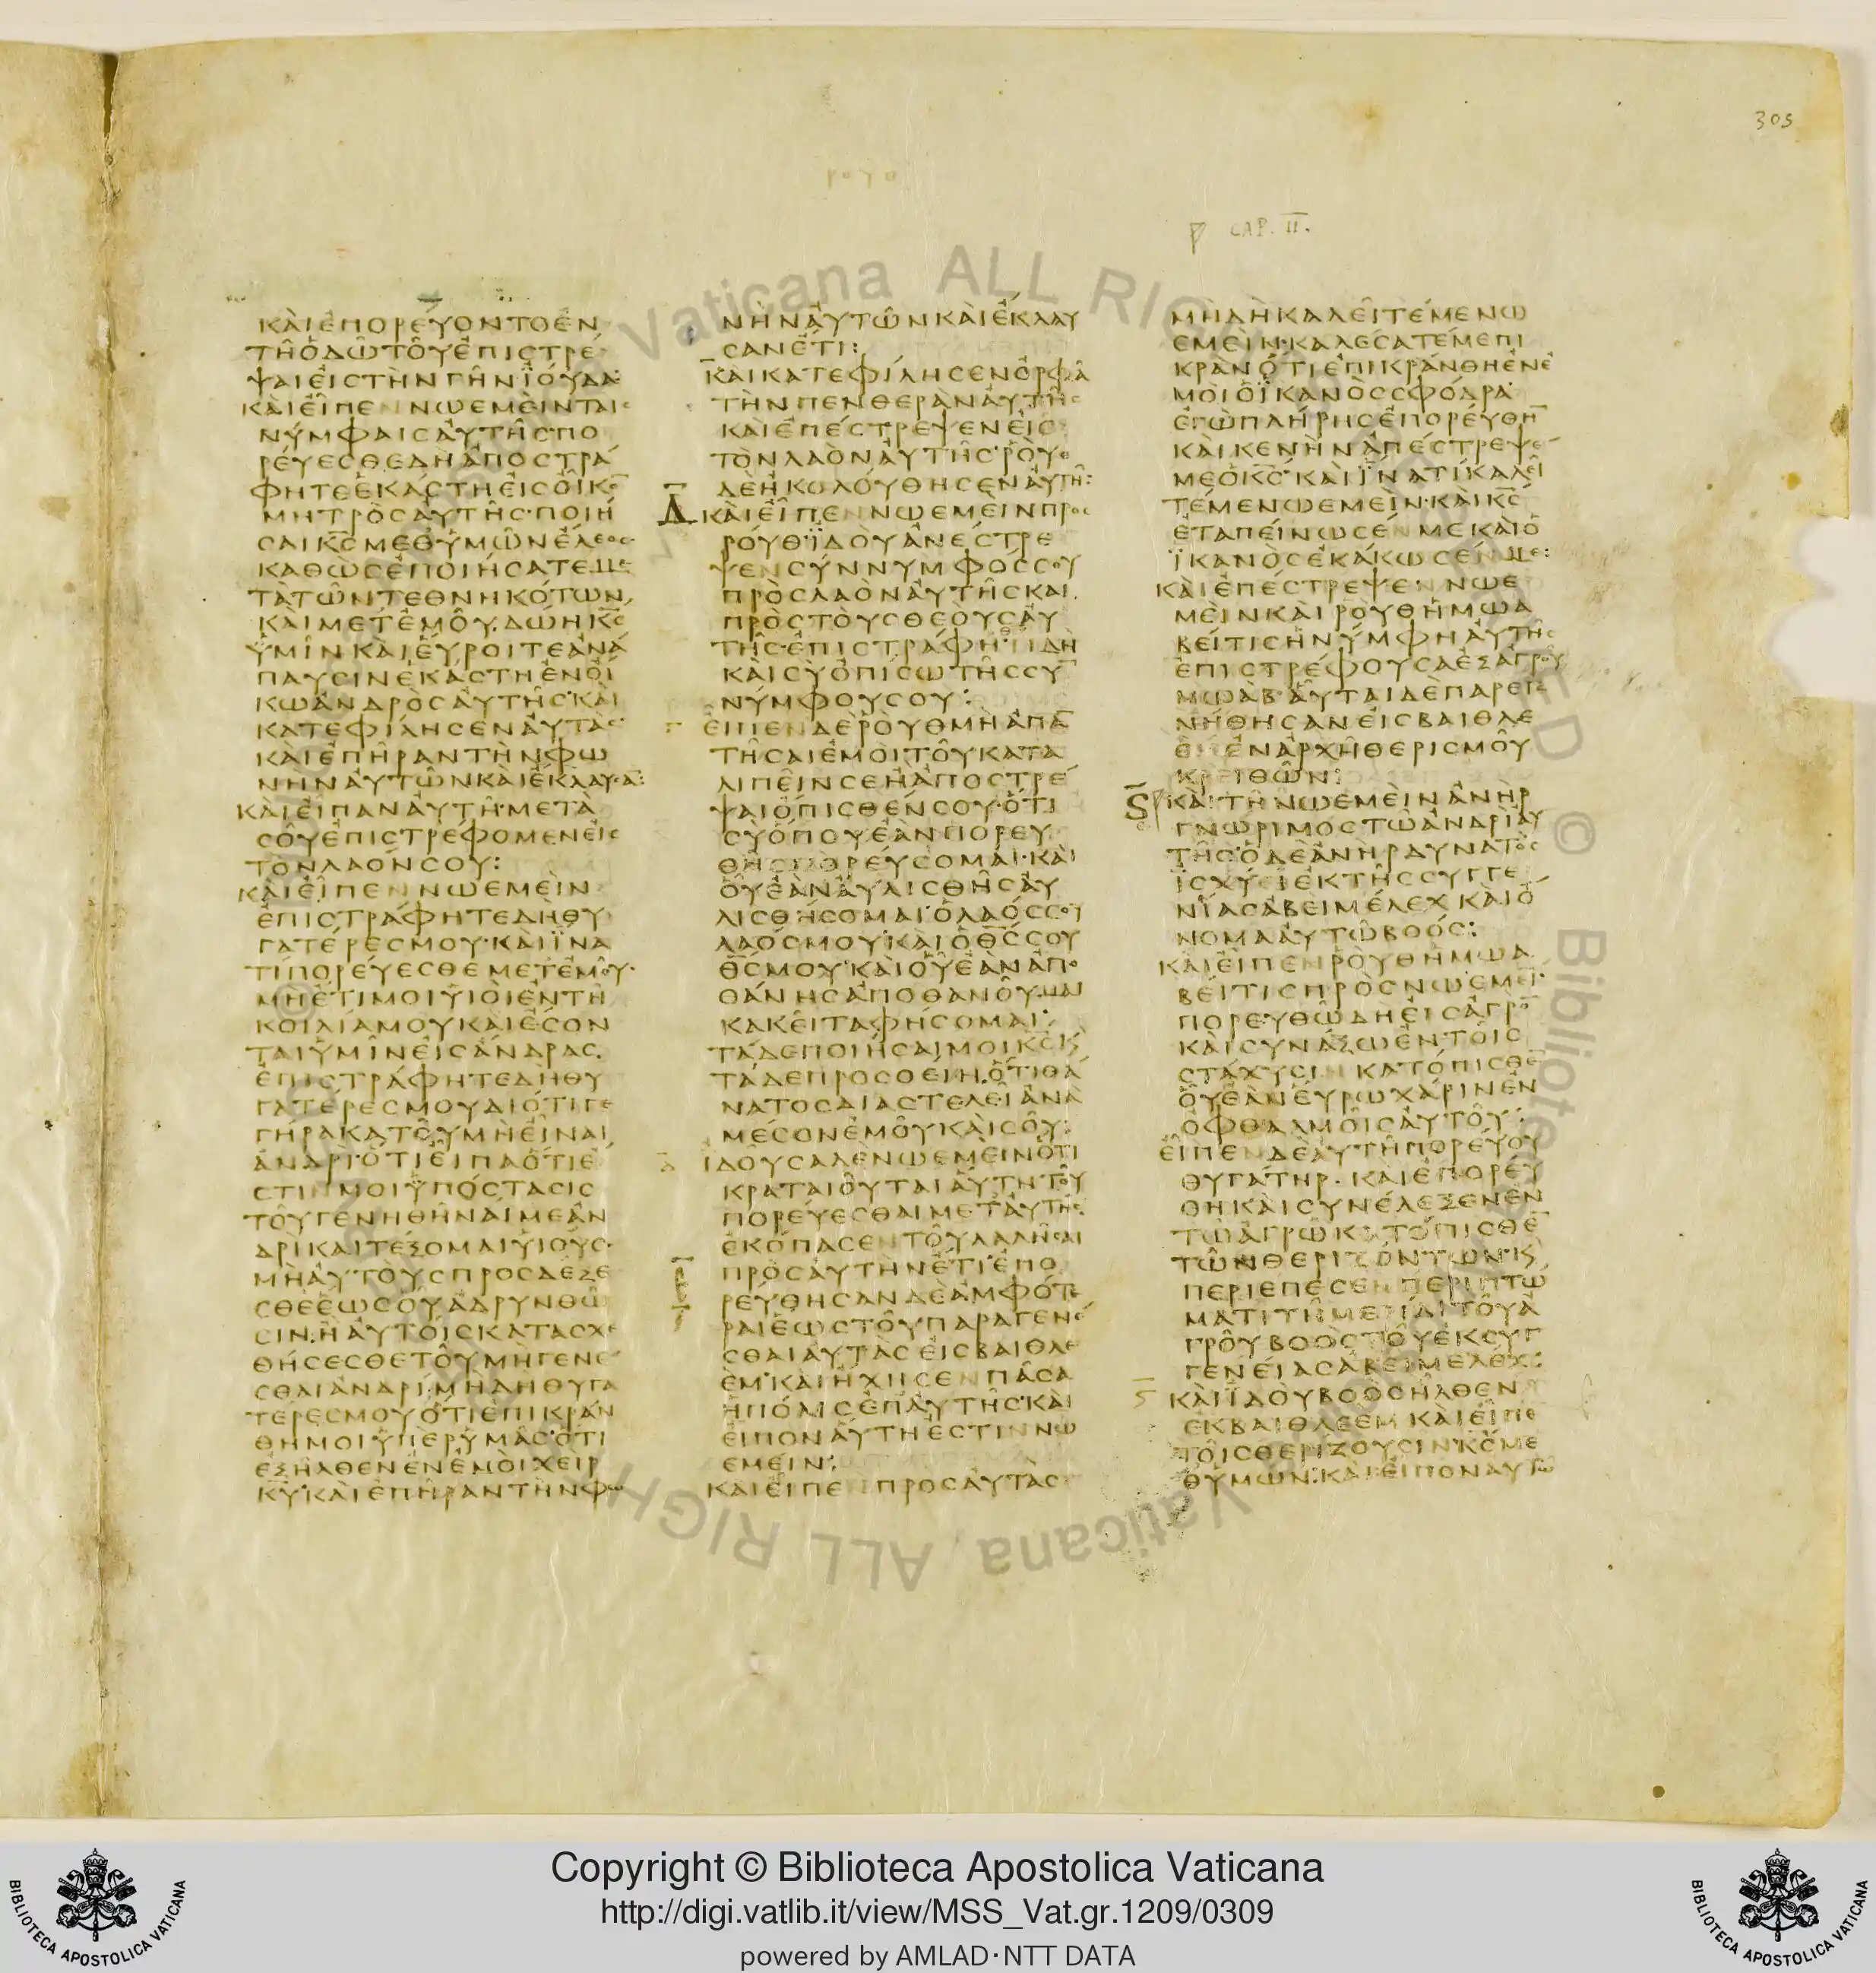 305
ρουθ
CAP. II.
ΚΑΙΕΠΟΡΕΥΟΝΤΟΕΝ
ΤΗΟΔΩΤΟΥΕΠΙΣΤΡΕ
ΨΑΙΕΙΣΤΗΝΓΗΝΙΟΥΔΑ
ΚΑΙΕΙΠΕΝΝΩΕΜΕΙΝΤΑΙΣ
ΝΥΜΦΑΙΣΑΥΤΗΣΠΟ
ΡΕΥΕΣΘΕΔΗΑΠΟΣΤΡΑ
ΦΗΤΕΕΚΑΣΤΗΕΙΣΟΙΚΟ̅
ΜΗΤΡΟΣΑΥΤΗΣΠΟΙΗ
ΣΑΙΚ̅Σ̅ΜΕΘΥΜΩΝΕΛΕΟΣ
ΚΑΘΩΣΕΠΟΙΗΣΑΤΕΜΕ
ΤΑΤΩΝΤΕΘΝΗΚΟΤΩΝ
ΚΑΙΜΕΤΕΜΟΥΔΩΗΚ̅Σ̅
ΥΜΙΝΚΑΙΕΥΡΟΙΤΕΑΝΑ
ΠΑΥΣΙΝΕΚΑΣΤΗΕΝΟΙ
ΚΩΑΝΔΡΟΣΑΥΤΗΣΚΑΙ
ΚΑΤΕΦΙΛΗΣΕΝΑΥΤΑΣ
ΚΑΙΕΠΗΡΑΝΤΗΝΦΩ
ΝΗΝΑΥΤΩΝΚΑΙΕΚΛΑΥΣΑ̅:
ΚΑΙΕΙΠΑΝΑΥΤΗΜΕΤΑ
ΣΟΥΕΠΙΣΤΡΕΦΟΜΕΝΕΙΣ
ΤΟΝΛΑΟΝΣΟΥ:
ΚΑΙΕΙΠΕΝΝΩΕΜΕΙΝ
ΕΠΙΣΤΡΑΦΗΤΕΔΗΘΥ
ΓΑΤΕΡΕΣΜΟΥΚΑΙΙΝΑ
ΤΙΠΟΡΕΥΕΣΘΕΜΕΤΕΜΟΥ
ΜΗΕΤΙΜΟΙΥΙΟΙΕΝΤΗ
ΚΟΙΛΙΑΜΟΥΚΑΙΕΣΟΝ
ΤΑΙΥΜΙΝΕΙΣΑΝΔΡΑΣ
ΕΠΙΣΤΡΑΦΗΤΕΔΗΘΥ
ΓΑΤΕΡΕΣΜΟΥΔΙΟΤΙΓΕ
ΓΗΡΑΚΑΤΟΥΜΗΕΙΝΑΙ
ΑΝΔΡΙΟΤΙΕΙΠΑΟΤΙΕ
ΣΤΙΝΜΟΙΥΠΟΣΤΑΣΙΣ
ΤΟΥΓΕΝΗΘΗΝΑΙΜΕΑΝ
ΔΡΙΚΑΙΤΕΞΟΜΑΙΥΙΟΥΣ
ΜΗΑΥΤΟΥΣΠΡΟΣΔΕΞΕ
ΣΘΕΕΩΣΟΥΑΔΡΥΝΘΩ
ΣΙΝΗΑΥΤΟΙΣΚΑΤΑΣΧΕ
ΘΗΣΕΣΘΕΤΟΥΜΗΓΕΝΕ
ΣΘΑΙΑΝΔΡΙΜΗΔΗΘΥΓΑ
ΤΕΡΕΣΜΟΥΟΤΙΕΠΙΚΡΑΝ
ΘΗΜΟΙΥΠΕΡΥΜΑΣΟΤΙ
ΕΞΗΛΘΕΝΕΝΕΜΟΙΧΕΙΡ
Κ̅Υ̅ΚΑΙΕΠΗΡΑΝΤΗΝΦΩ
ΝΗΝΑΥΤΩΝΚΑΙΕΚΛΑΥ
ΣΑΝΕΤΙ:
ΚΑΙΚΑΤΕΦΙΛΗΣΕΝΟΡΦΑ
ΤΗΝΠΕΝΘΕΡΑΝΑΥΤΗΣ
ΚΑΙΕΠΕΣΤΡΕΨΕΝΕΙΣ
ΤΟΝΛΑΟΝΑΥΤΗΣΡΟΥΘ
ΔΕΗΚΟΛΟΥΘΗΣΕΝΑΥΤΗ:
Δ ΚΑΙΕΙΠΕΝΝΩΕΜΕΙΝΠΡΟΣ
ΡΟΥΘΙΔΟΥΑΝΕΣΤΡΕ
ΨΕΝΣΥΝΝΥΜΦΟΣΣΟΥ
ΠΡΟΣΛΑΟΝΑΥΤΗΣΚΑΙ
ΠΡΟΣΤΟΥΣΘΕΟΥΣΑΥ
ΤΗΣΕΠΙΣΤΡΑΦΗΤΙΔΗ
ΚΑΙΣΥΟΠΙΣΩΤΗΣΣΥ̅
ΝΥΜΦΟΥΣΟΥ:
ΕΙΠΕΝΔΕΡΟΥΘΜΗΑΠΑ̅
ΤΗΣΑΙΕΜΟΙΤΟΥΚΑΤΑ
ΛΙΠΕΙΝΣΕΗΑΠΟΣΤΡΕ
ΨΑΙΟΠΙΣΘΕΝΣΟΥΟΤΙ
ΣΥΟΠΟΥΕΑΝΠΟΡΕΥ
ΘΗΣΠΟΡΕΥΣΟΜΑΙΚΑΙ
ΟΥΕΑΝΑΥΛΙΣΘΗΣΑΥ
ΛΙΣΘΗΣΟΜΑΙΟΛΑΟΣΣΟΥ
ΛΑΟΣΜΟΥΚΑΙΟΘ̅Σ̅ΣΟΥ
Θ̅Σ̅ΜΟΥΚΑΙΟΥΕΑΝΑΠΟ
ΘΑΝΗΣΑΠΟΘΑΝΟΥΜΑΙ
ΚΑΚΕΙΤΑΦΗΣΟΜΑΙ
ΤΑΔΕΠΟΙΗΣΑΙΜΟΙΚ̅Σ̅Κ
ΤΑΔΕΠΡΟΣΘΕΙΗΟΤΙΘΑ
ΝΑΤΟΣΔΙΑΣΤΕΛΕΙΑΝΑ
ΜΕΣΟΝΕΜΟΥΚΑΙΣΟΥ:
ΙΔΟΥΣΑΔΕΝΩΕΜΕΙΝΟΤΙ
ΚΡΑΤΑΙΟΥΤΑΙΑΥΤΗΤΟΥ
ΠΟΡΕΥΕΣΘΑΙΜΕΤΑΥΤΗΣ
ΕΚΟΠΑΣΕΝΤΟΥΛΑΛΗΣΑΙ
ΠΡΟΣΑΥΤΗΝΕΤΙΕΠΟ
ΡΕΥΘΗΣΑΝΔΕΑΜΦΟΤΕ
ΡΑΙΕΩΣΤΟΥΠΑΡΑΓΕΝΕ
ΣΘΑΙΑΥΤΑΣΕΙΣΒΑΙΘΛΕ
ΕΜΚΑΙΗΧΗΣΕΝΠΑΣΑ
ΗΠΟΛΙΣΕΠΑΥΤΗΣΚΑΙ
ΕΙΠΟΝΑΥΤΗΕΣΤΙΝΝΩ
ΕΜΕΙΝ:
ΚΑΙΕΙΠΕΝΠΡΟΣΑΥΤΑΣ
ΜΗΔΗΚΑΛΕΙΤΕΜΕΝΩ
ΕΜΕΙΝΚΑΛΕΣΑΤΕΜΕΠΙ
ΚΡΑΝΟΤΙΕΠΙΚΡΑΝΘΗΕΝΕ
ΜΟΙΟΙΚΑΝΟΣΣΦΟΔΡΑ
ΕΓΩΠΛΗΡΗΣΕΠΟΡΕΥΘΗ̅
ΚΑΙΚΕΝΗΝΑΠΕΣΤΡΕΨΕ
ΜΕΟΚ̅Σ̅ΚΑΙΙΝΑΤΙΚΑΛΕΙ
ΤΕΜΕΝΩΕΜΕΙΝΚΑΙΚ̅Σ̅
ΕΤΑΠΕΙΝΩΣΕΝΜΕΚΑΙΟ
ΙΚΑΝΟΣΕΚΑΚΩΣΕΝΜΕ:
ΚΑΙΕΠΕΣΤΡΕΨΕΝΝΩΕ
ΜΕΙΝΚΑΙΡΟΥΘΗΜΩΑ
ΒΕΙΤΙΣΗΝΥΜΦΗΑΥΤΗΣ
ΕΠΙΣΤΡΕΦΟΥΣΑΕΞΑΓΡΟΥ
ΜΩΑΒΑΥΤΑΙΔΕΠΑΡΕΓΕ
ΝΗΘΗΣΑΝΕΙΣΒΑΙΘΛΕ
ΕΜΕΝΑΡΧΗΘΕΡΙΣΜΟΥ
ΚΡΕΙΘΩΝ:
ΚΑΙΤΗΝΩΕΜΕΙΝΑΝΗΡ
ΓΝΩΡΙΜΟΣΤΩΑΝΔΡΙΑΥ
ΤΗΣΟΔΕΑΝΗΡΔΥΝΑΤΟΣ
ΙΣΧΥΕΙΕΚΤΗΣΣΥΓΓΕ
ΝΙΑΣΑΒΕΙΜΕΛΕΧΚΑΙΟ
ΝΟΜΑΑΥΤΩΒΟΟΣ:
ΚΑΙΕΙΠΕΝΡΟΥΘΗΜΩΑ
ΒΕΙΤΙΣΠΡΟΣΝΩΕΜΕΙ̅
ΠΟΡΕΥΘΩΔΗΕΙΣΑΓΡΟ̅
ΚΑΙΣΥΝΑΞΩΕΝΤΟΙΣ
ΣΤΑΧΥΣΙΝΚΑΤΟΠΙΣΘΕ̅
ΟΥΕΑΝΕΥΡΩΧΑΡΙΝΕΝ
ΟΦΘΑΛΜΟΙΣΑΥΤΟΥ:
ΕΙΠΕΝΔΕΑΥΤΗΠΟΡΕΥΟΥ
ΘΥΓΑΤΗΡΚΑΙΕΠΟΡΕΥ
ΘΗΚΑΙΣΥΝΕΛΕΞΕΝΕΝ
ΤΩΑΓΡΩΚΑΤΟΠΙΣΘΕ̅
ΤΩΝΘΕΡΙΖΟΝΤΩΝΚ
ΠΕΡΙΕΠΕΣΕΝΠΕΡΙΠΤΩ
ΜΑΤΙΤΗΜΕΡΙΔΙΤΟΥΑ
ΓΡΟΥΒΟΟΣΤΟΥΕΚΣΥΓ
ΓΕΝΕΙΑΣΑΒΕΙΜΕΛΕΧ:
ΚΑΙΙΔΟΥΒΟΟΣΗΛΘΕΝ
ΕΚΒΑΙΘΛΕΕΜΚΑΙΕΙΠΕ
ΤΟΙΣΘΕΡΙΖΟΥΣΙΝΚ̅Σ̅ΜΕ
ΘΥΜΩΝΚΑΙΕΙΠΟΝΑΥΤΩ
Vaticana ALL RIGHTS RESERVED © Biblioteca
Copyright © Biblioteca Apostolica Vaticana
http://digi.vatlib.it/view/MSS_Vat.gr.1209/0309
powered by AMLAD·NTT DATA
BIBLIOTECA APOSTOLICA VATICANA
BIBLIOTECA APOSTOLICA VATICANA